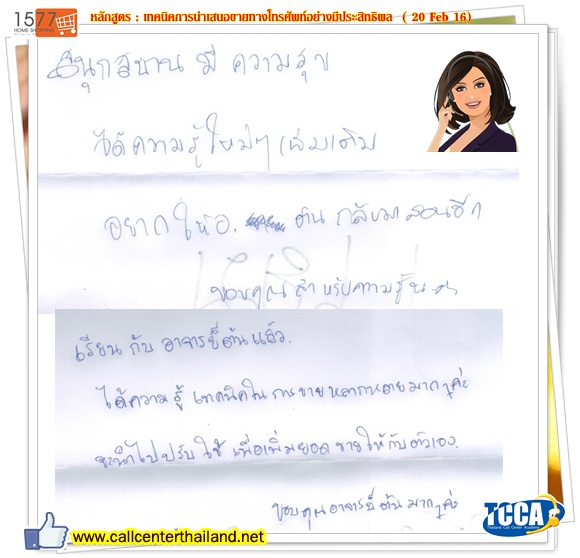 1577
HOME SHOPPING
หลักสูตร : เทคนิคการนำเสนอขายทางโทรศัพท์อย่างมีประสิทธิพล ( 20 Feb 16)
สนุกสนาน มี ความสุข
ได้ความรู้ใหม่ๆ เพิ่มเติม
อยากให้อ. ต้น กลับมาสอนอีก
ขอบคุณสำหรับความรู้นะคะ
เรียน กับ อาจารย์ต้นแล้ว.
ได้ความรู้ เทคนิคใน การขายหลากหลายมากๆค่ะ
จะนำไปปรับใช้ เพื่อเพิ่มยอดขายให้กับตัวเอง.
ขอบคุณอาจารย์ต้น มากๆค่ะ
www.callcenterthailand.net
TCCA
Thailand Call Center Academy